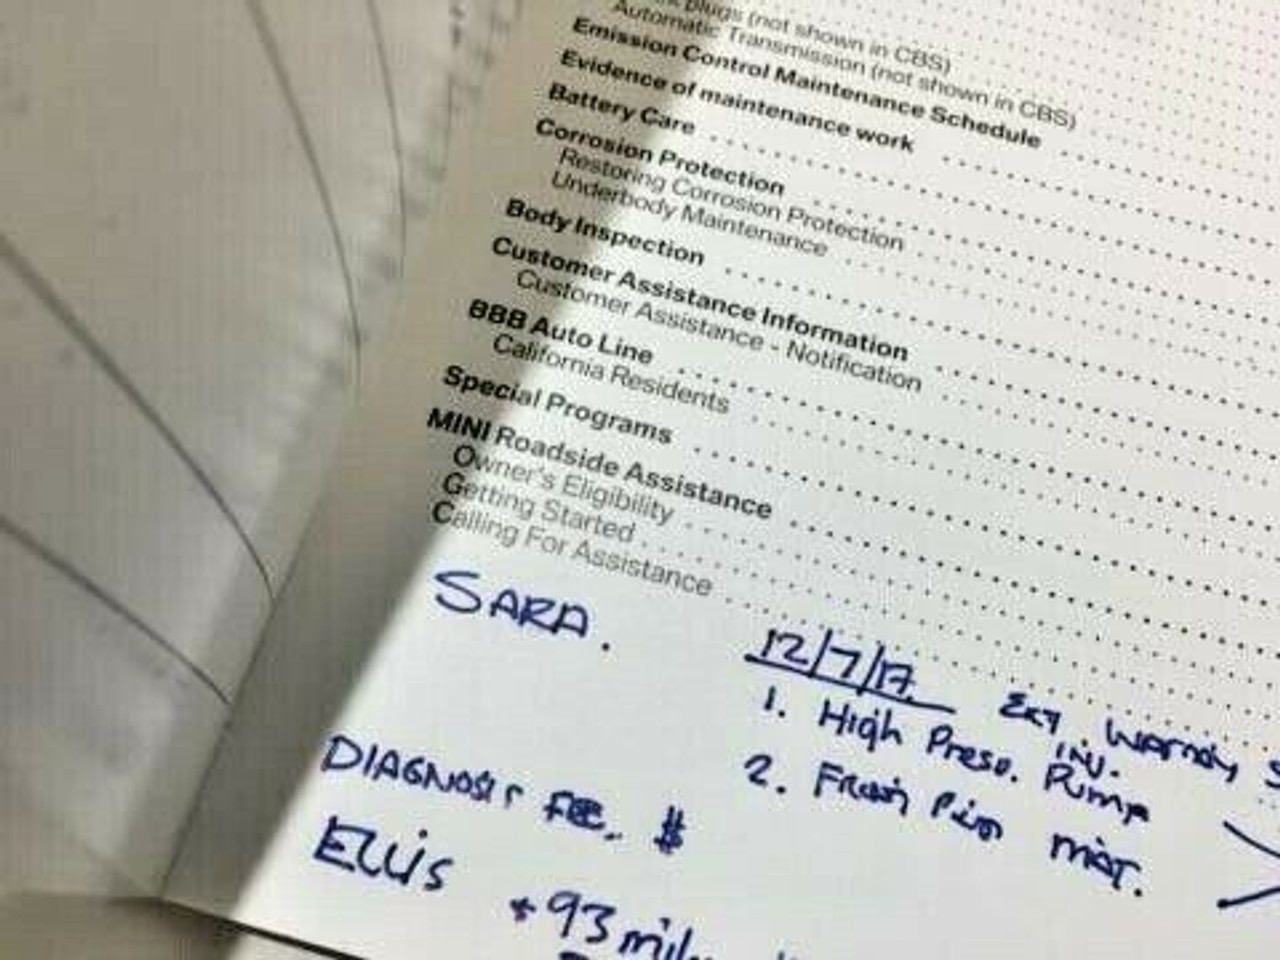 plugs (not shown in CBS)
Automatic Transmission (not shown in CBS)
Emission Control Maintenance Schedule
Evidence of maintenance work
Battery Care
Corrosion Protection
Restoring Corrosion Protection
Underbody Maintenance
Body Inspection
Customer Assistance Information
Customer Assistance - Notification
BBB Auto Line
California Residents
Special Programs
MINI Roadside Assistance
Owner's Eligibility
Getting Started
Calling For Assistance
SARA.
12/7/17
1. High Press. Pump
2.
DIAGNOSIS FEE. $
ELLIS
+93